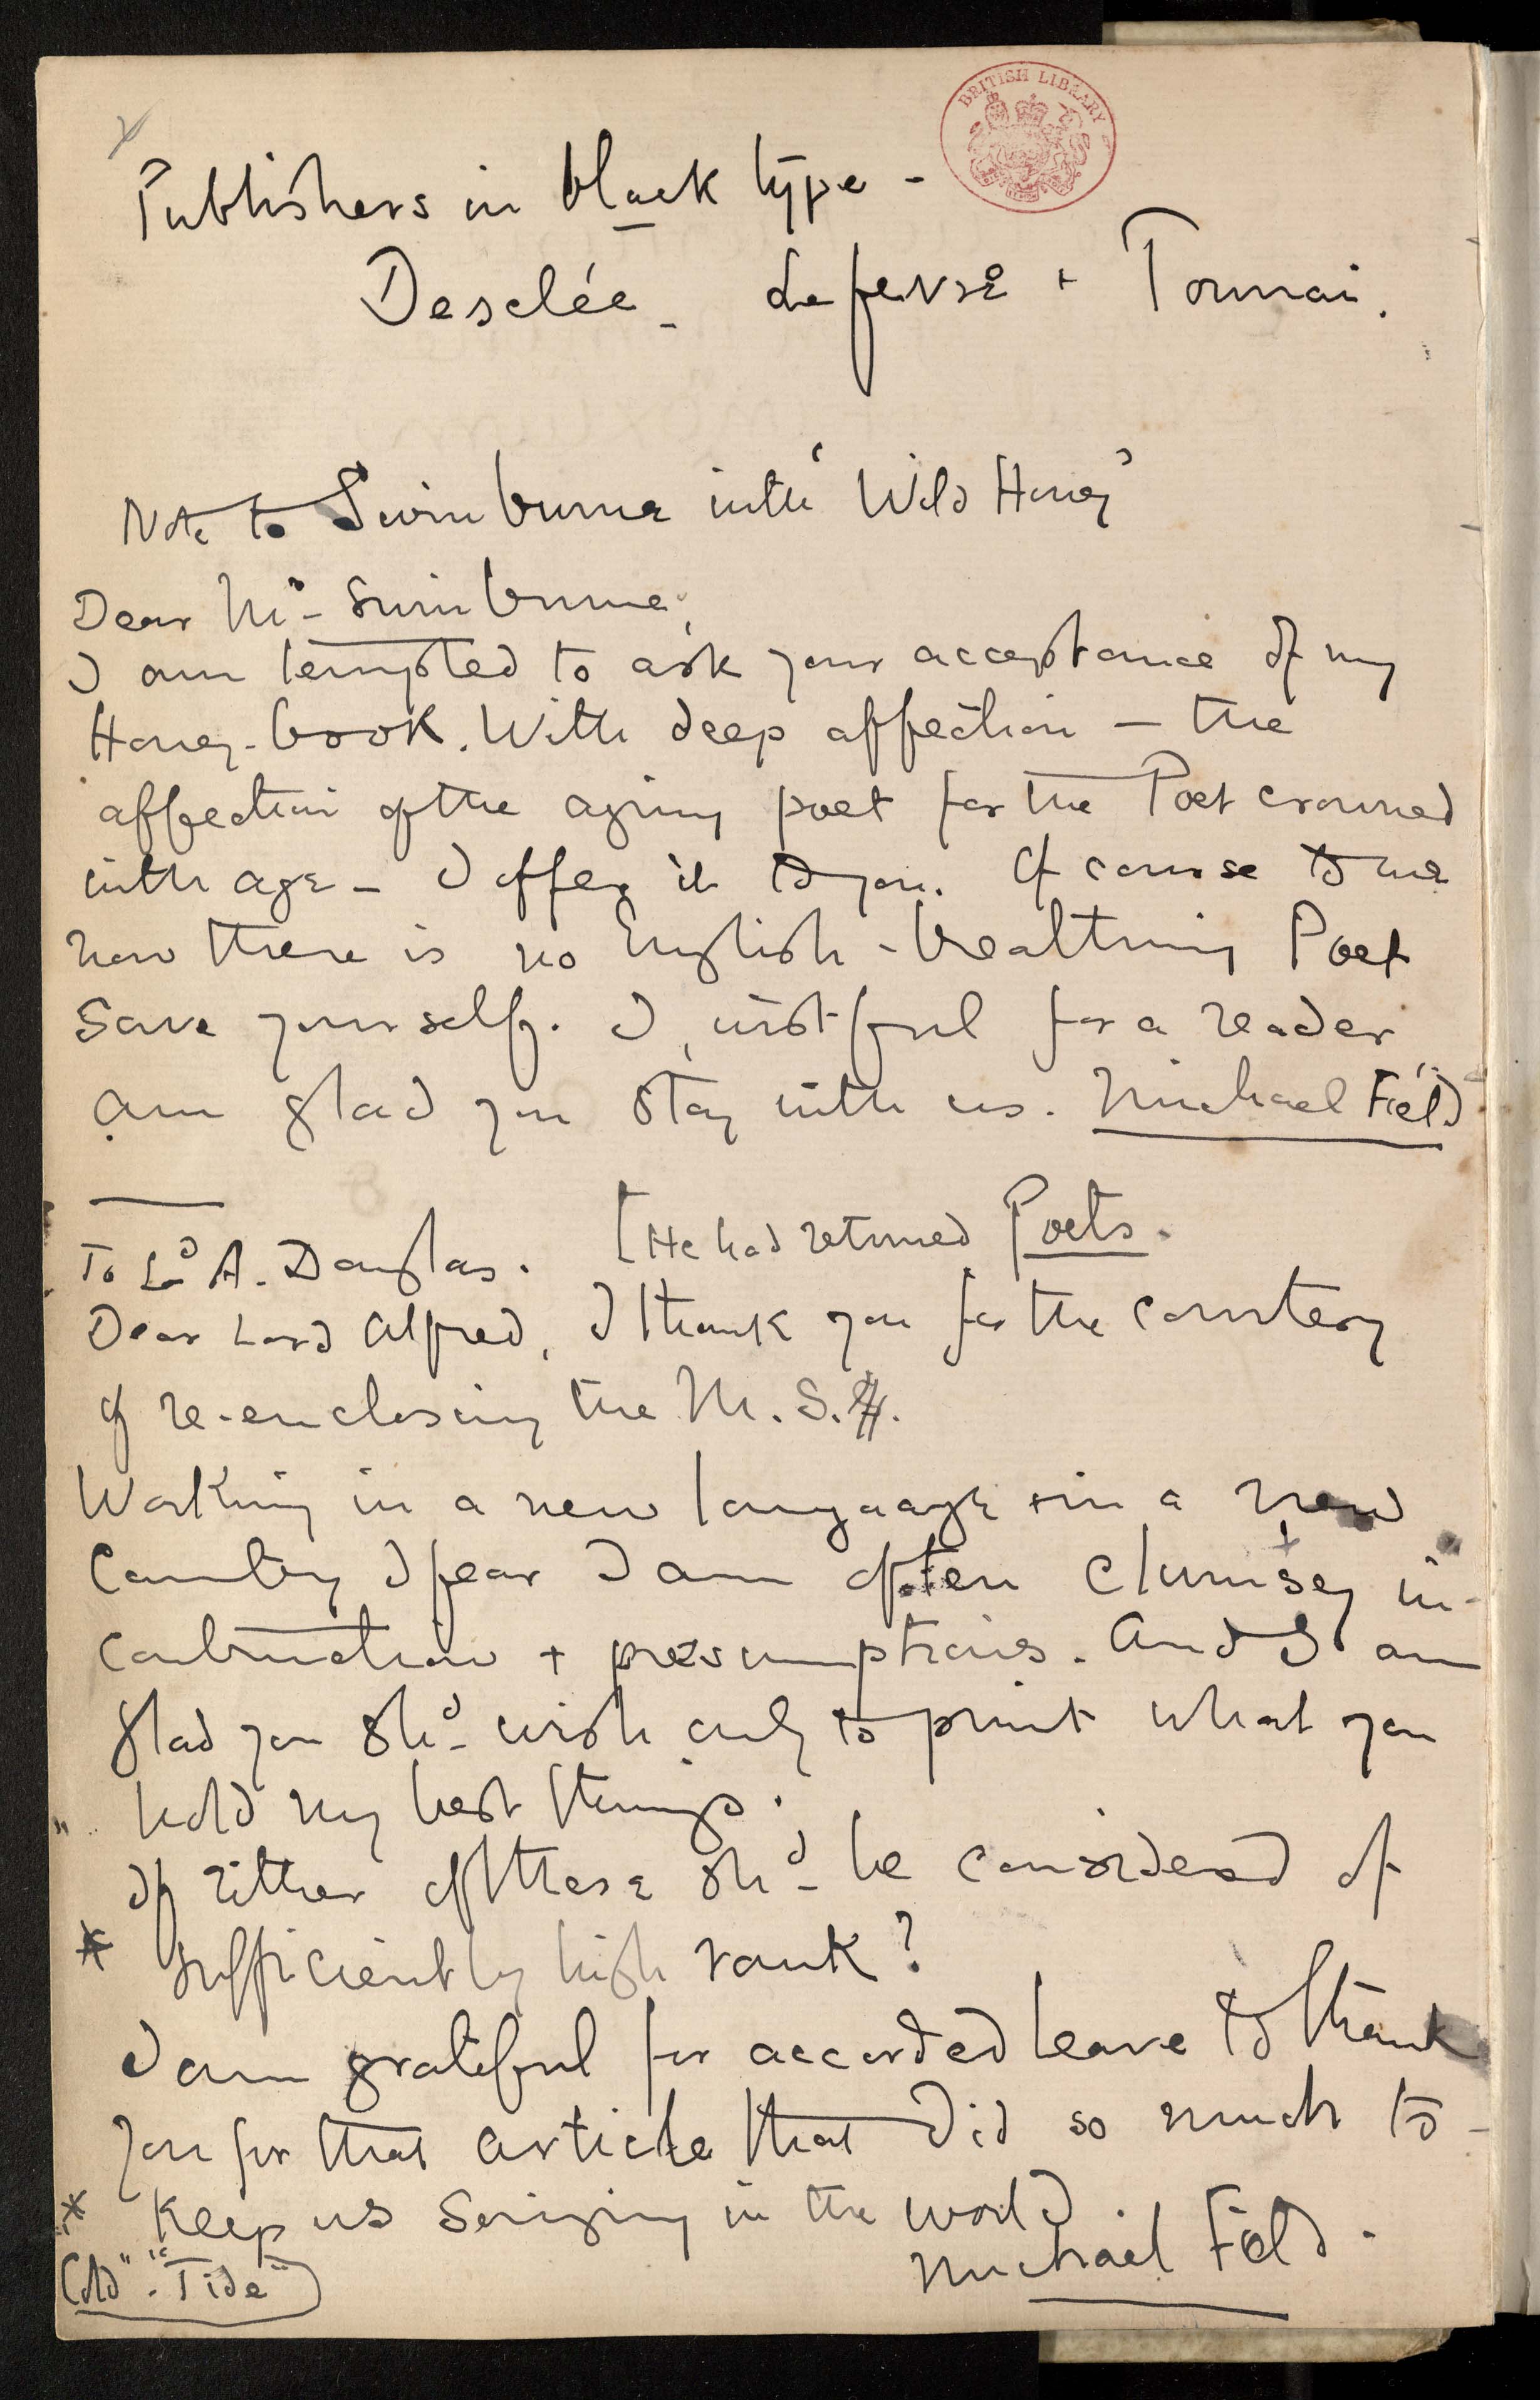 BRITISH LIBRARY
Publishers in black type -
Desclée - Lefevre + Tournai.
Note to Swinburne with 'Wild Honey'
Dear Mr. Swinburne,
I am tempted to ask your acceptance of my
Honey-book. With deep affection — the
affection of the aging poet for the Poet crowned
with age — I offer it to you. Of course to me
now there is no English-breathing Poet
save yourself. I, wistful for a reader
am glad you stay with us. Michael Field
To Ld A. Douglas. [He had returned Poets.
Dear Lord Alfred, I thank you for the courtesy
of re-enclosing the M.S.
Working in a new language + in a new
Country I fear I am often clumsey in
construction + presumptions. And I am
glad you shd wish only to print what you
hold my best things.
If either of these shd be considered of
* sufficiently high rank?
I am grateful for accorded leave to thank
you for that article that did so much to
* keep us singing in the world.
Michael Field.
"Tide"